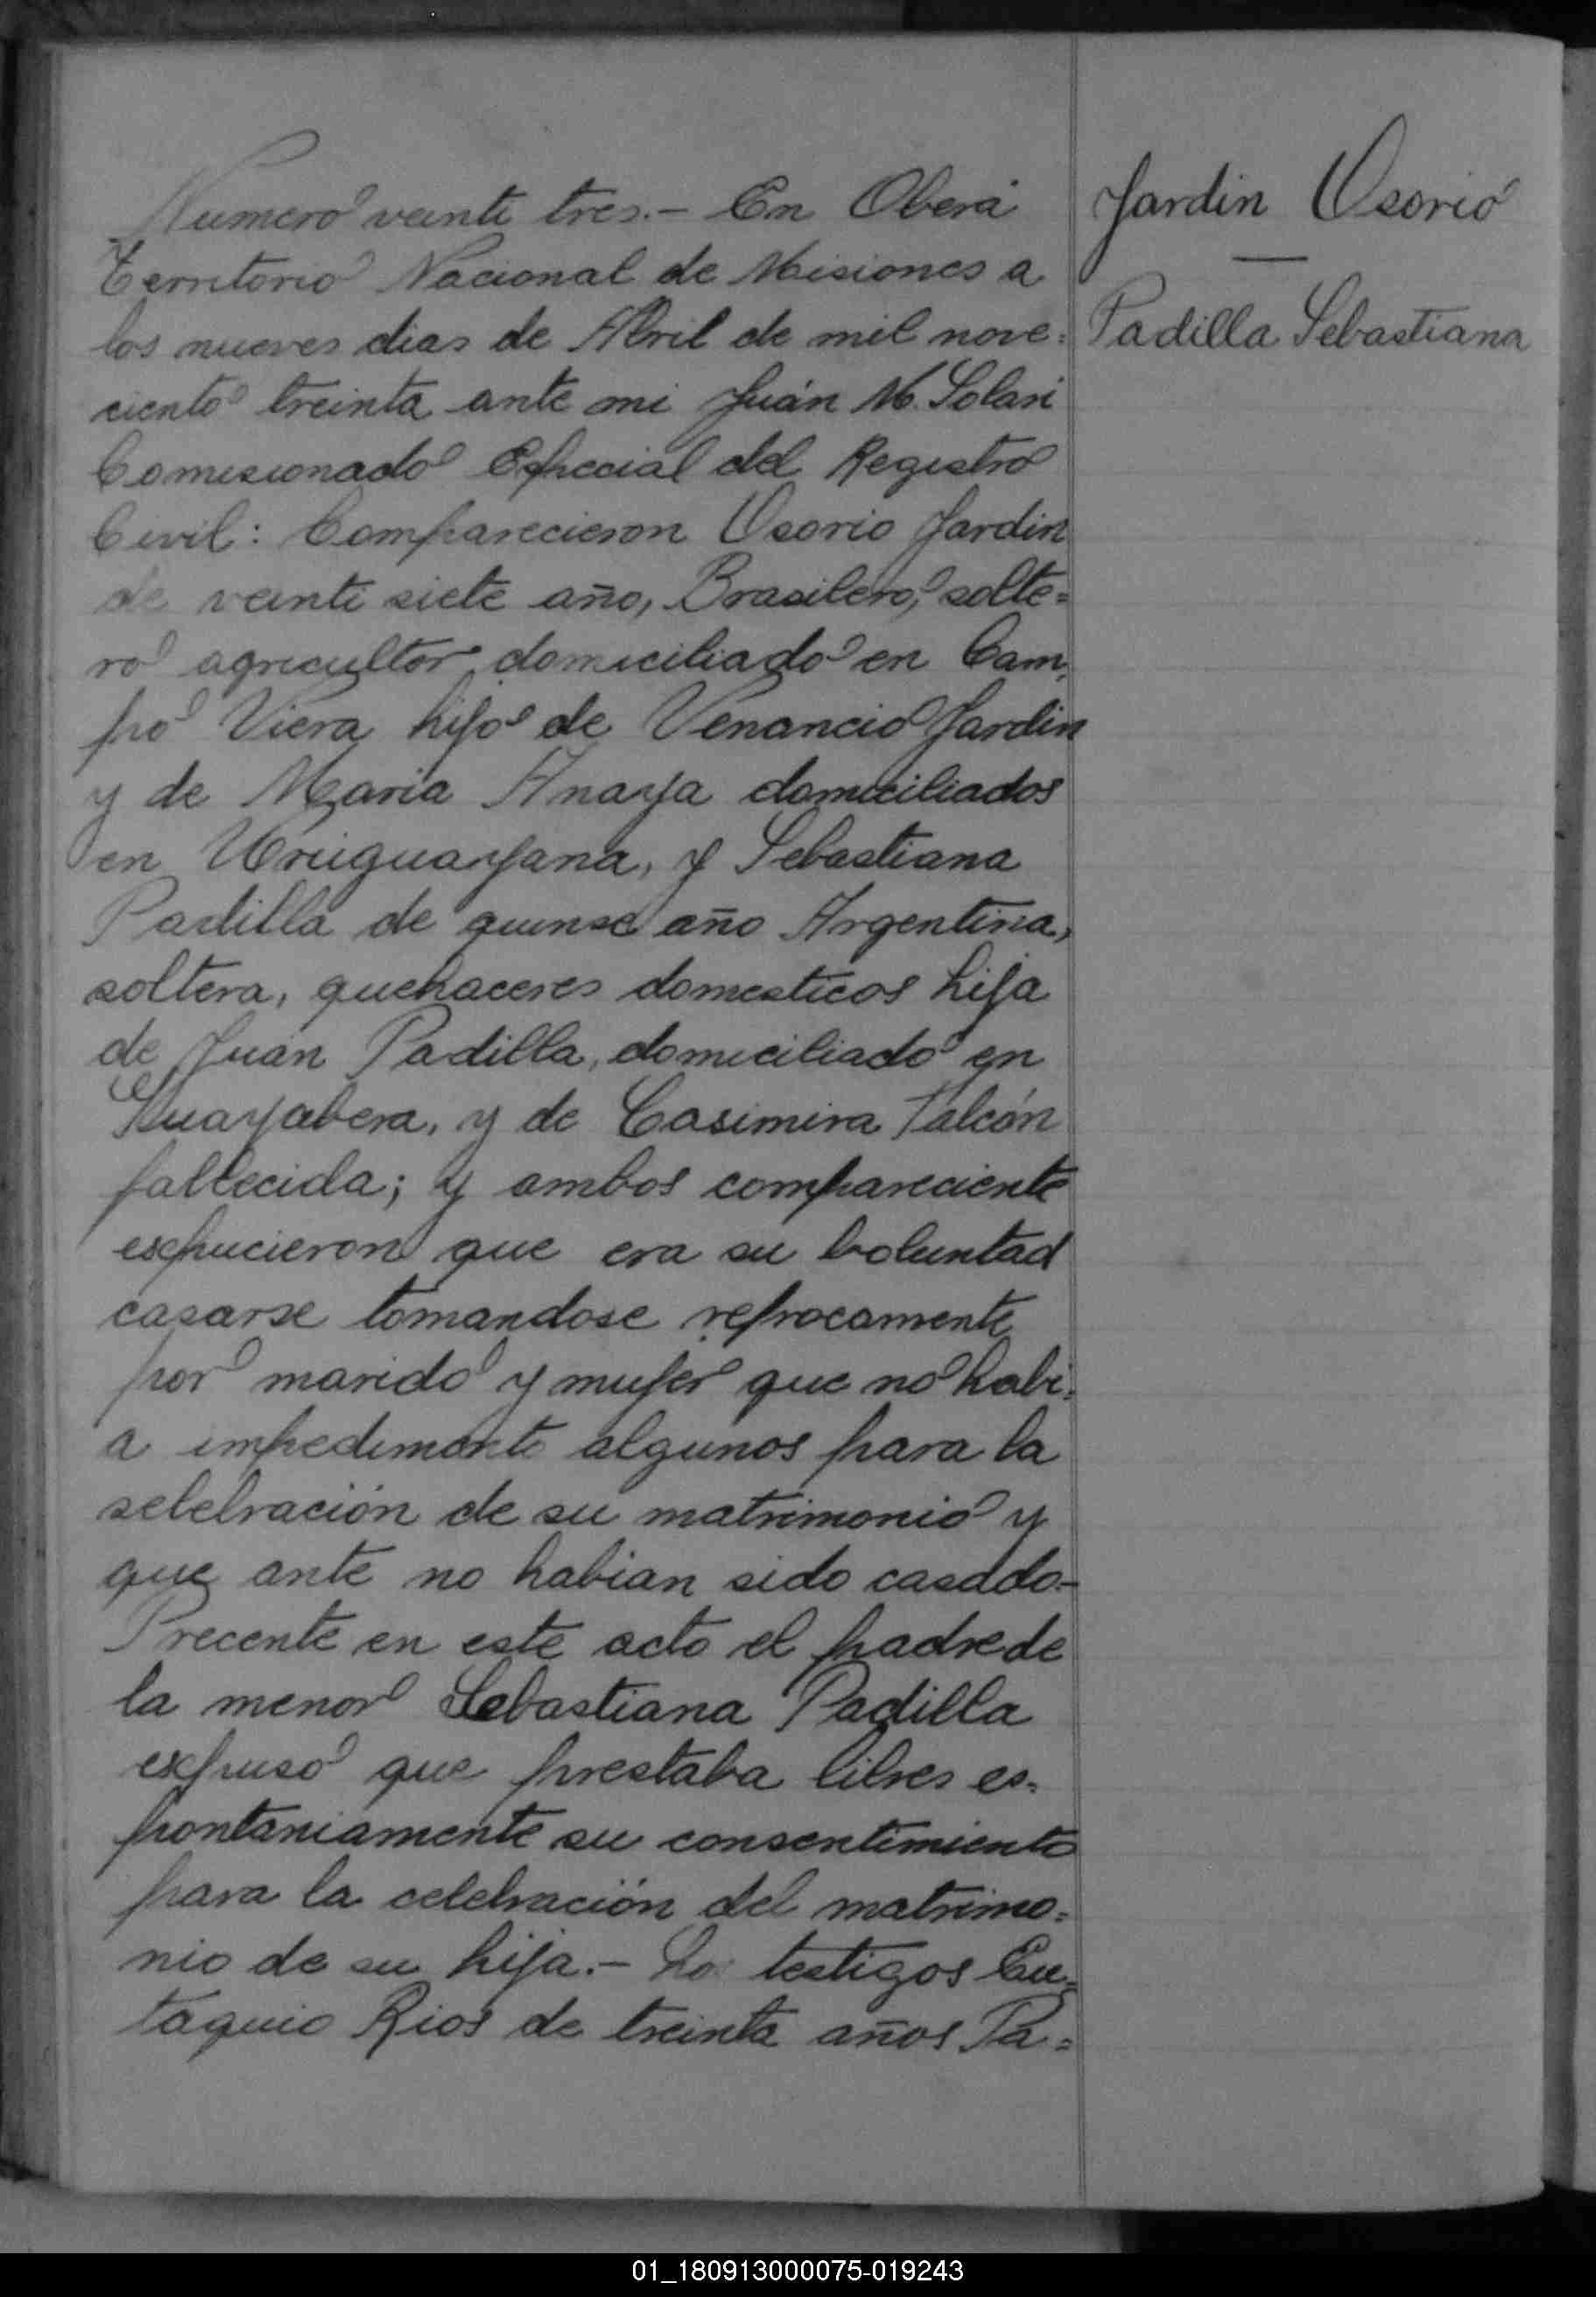 Numero veinte tres.- En Oberá
Territorio Nacional de Misiones a
los nueves dias de Abril de mil nove=
ciento treinta ante mi Juán M. Solari
Comisionado Especial del Registro
Civil: Comparecieron Osorio Jardin
de veinte siete año, Brasilero, solte=
ro agricultor domiciliado en Cam,
po Viera hijo de Venancio Jardin
y de Maria Anaya domiciliados
en Uruguayana, y Sebastiana
Padilla de quinse año Argentina,
soltera, quehaceres domesticos hija
de Juán Padilla, domiciliado en
Guayabera, y de Casimira Falcón
fallecida; y ambos compareciente
expucieron que era su boluntad
casarse tomandose reprocamente
por marido y mujer que no habi=
a impedimento algunos para la
selebración de su matrimonio y
que ante no habian sido casado-
Precente en este acto el padre de
la menor Sebastiana Padilla
expuso que prestaba libres es=
pontaniamente su consentimiento
para la celebración del matrimo=
nio de su hija.- Los testigos Eu=
taquio Rios de treinta años Pa=
Jardin Osorio
—
Padilla Sebastiana
01_180913000075-019243